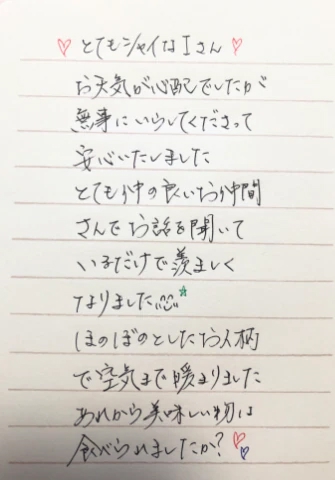 ♡とてもシャイなIさん♡
お天気が心配でしたが
無事にいらしてくださって
安心いたしました
とても仲の良いお仲間
さんでお話を聞いて
いるだけで羨ましく
なりました
ほのぼのとしたお人柄
で空気まで暖まりました
あれから美味しい物は
食べられましたか?♡♡